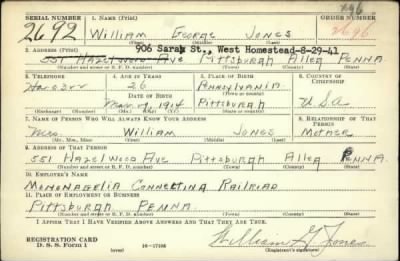 SERIAL NUMBER 1. NAME (Print) ORDER NUMBER
2692 William George Jones 2696
(First) (Middle) (Last)
906 Sarah St., West Homestead-8-29-41
2. ADDRESS (Print)
551 Hazelwood Ave Pittsburgh Alleg Penna
(Number and street or R. F. D. number) (Town) (County) (State)
3. TELEPHONE 4. AGE IN YEARS 5. PLACE OF BIRTH 6. COUNTRY OF CITIZENSHIP
26 Pennsylvania
(Town or county)
DATE OF BIRTH
Mar. 7 1914 Pittsburgh U.S.A
(Exchange) (Number) (Mo.) (Day) (Yr.) (State or country)
7. NAME OF PERSON WHO WILL ALWAYS KNOW YOUR ADDRESS 8. RELATIONSHIP OF THAT PERSON
Mrs. William Jones Mother
(Mr., Mrs., Miss) (First) (Middle) (Last)
9. ADDRESS OF THAT PERSON
551 Hazelwood Ave Pittsburgh Alleg Penna.
(Number and street or R. F. D. number) (Town) (County) (State)
10. EMPLOYER'S NAME
Monongahelia Connecting Railroad
11. PLACE OF EMPLOYMENT OR BUSINESS
Pittsburgh Penna.
(Number and street or R. F. D. number) (Town) (County) (State)
I AFFIRM THAT I HAVE VERIFIED ABOVE ANSWERS AND THAT THEY ARE TRUE.
REGISTRATION CARD
D. S. S. Form 1 (over) 16-17105 William G. Jones
(Registrant's signature)